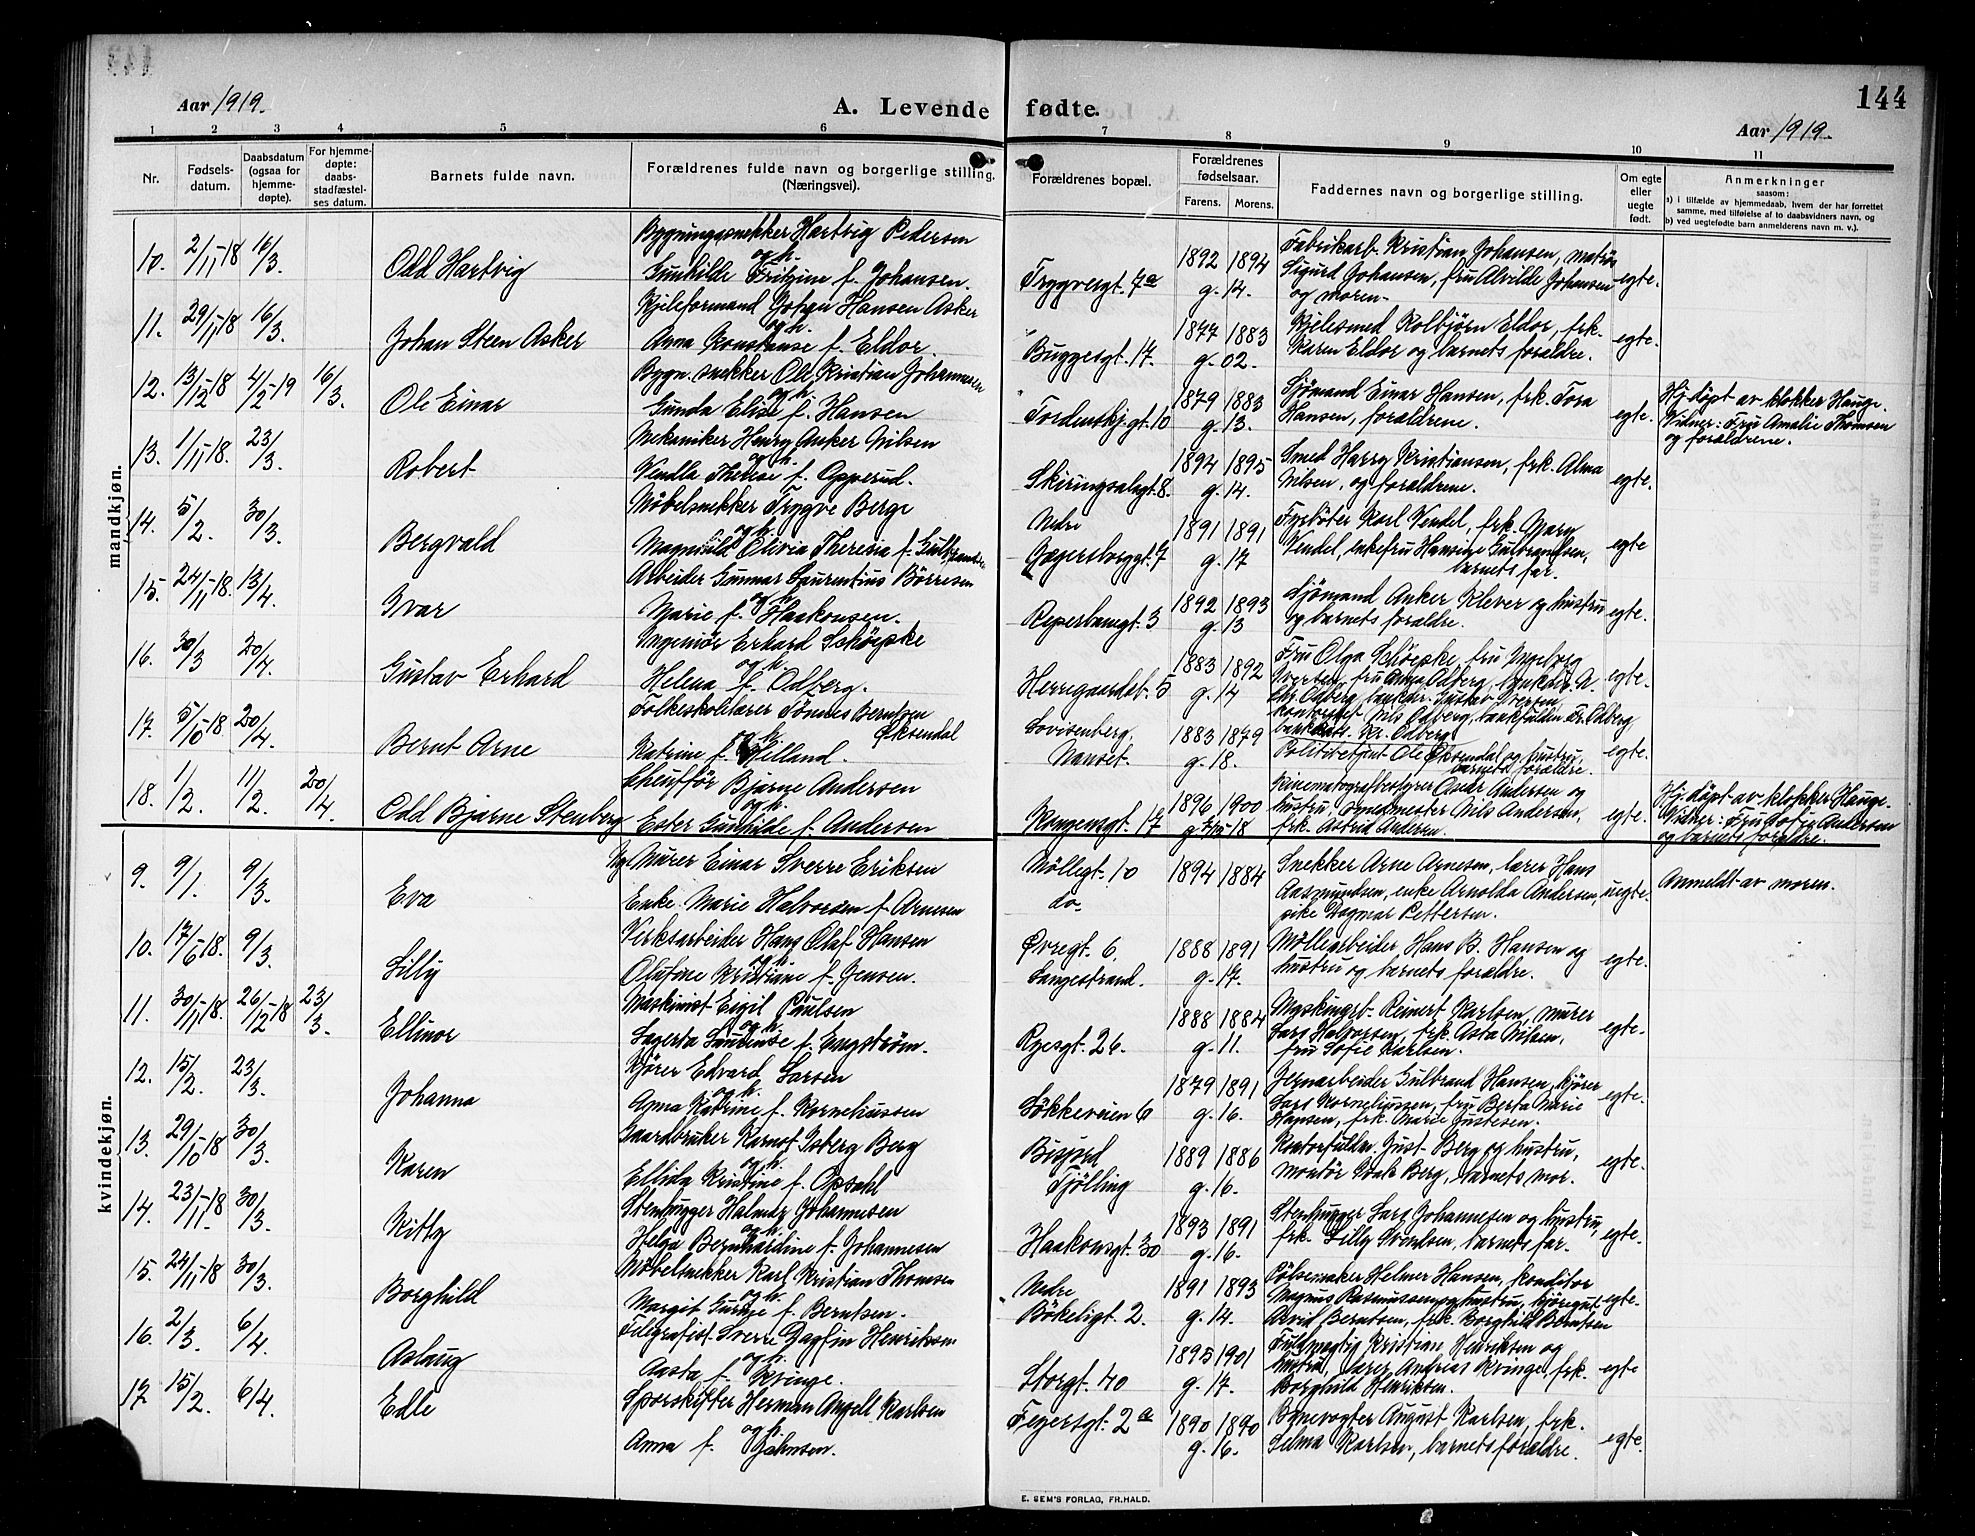 144
Aar 1919. A. Levende fødte. Aar 1919.
1 2 3 4 5 6 7 8 9 10 11
Nr.
Fødselsdatum.
Daabsdatum (ogsaa for hjemmedøpte).
For hjemmedøpte: daabsstadfæstelses datum.
Barnets fulde navn.
Forældrenes fulde navn og borgerlige stilling. (Næringsvei).
Forældrenes bopæl.
Forældrenes fødselsaar.
Farens. Morens.
Faddernes navn og borgerlige stilling.
Om egte eller uegte født.
Anmerkninger
saasom:
a) i tilfælde av hjemmedaab, hvem der har forrettet samme, med tilføielse af to daabsvidners navn, og
b) ved uegtefødte barn anmelderens navn m. v.).
mandkjøn.
10. 2/11-18 16/3. Odd Hartvig
Bygningssnekker Hartvig Pedersen
og h.
Gunhilde Fritzine f. Johansen.
Trygvesgt. 7a 1892 1894 g. 14.
Fabrikarb. Kristian Johansen, matros
Sigurd Johansen, fru Alvilde Johansen
og moren.
egte.
11. 29/11-18 16/3. Johan Steen Asker
Kjeleformand Johan Hansen Asker
og h.
Anna Konstanse f. Eldor.
Buggesgt. 17. 1877 1883 g. 02.
Kjelesmed Kolbjørn Eldor, frk.
Karen Eldor og barnets forældre.
egte.
12. 13/12-18 4/2-19 16/3. Ole Einar
Bygn. snekker Ole Kristian Johannesen
og h.
Gunda Elise f. Hansen
Tordenskj.gt. 10 1879 1883 g. 13.
Sjømand Einar Hansen, frk. Tora
Hansen, forældrene.
egte.
Hj. døpt av klokker Hauge.
Vidner: Fru Amalie Thomsen
og forældrene.
13. 1/11-18. 23/3. Robert
Mekaniker Henry Anker Nilsen
og h.
Vendla Therese f. Opperud.
Skiringsalsgt. 8. 1894 1895 g. 14.
Smed Harry Kristiansen, frk. Alma
Nilsen, og forældrene.
egte.
14. 5/2. 30/3. Bergvald
Möbelsnekker Trygve Berge
og h.
Magnhild Olivia Theresia f. Gulbrandsen
Nedre
Jægersborggt. 7 1891 1891 g. 17
Fyrbøter Karl Vendel, frk. Mary
Vendel, enkefru Hansine Gulbrandsen,
barnets far.
egte
15. 24/11-18. 13/4. Ivar
Arbeider Gunnar Laurentius Börresen
og h.
Marie f. Haakonsen.
Reperbanegt. 3 1892 1893 g. 13
Sjömand Anker Klever og hustru
og barnets forældre.
egte.
16. 30/3 20/4. Gustav Erhard
Ingeniør Erhard Schöepke
og h.
Helena f. Odberg.
Herregaardsb. 5 1883 1892 g. 14
Fru Olga Schöepke, fru Ingeborg
Iversen, fru Anna Odberg, bankdir. A.
Chr. Odberg, bankdir. Gustav Iversen,
kontorchef Nils Odberg, bankfuldm. Fr. Odberg,
bankkass. Kr. Odberg.
egte.
17. 5/10-18 20/4. Bernt Arne
Folkeskolelærer Tønnes Berntsen
Øksendal
og h.
Katrine f. Hilland.
Lovisenberg,
Nanset. 1883 1879 g. 18.
Politibetjent Ole Øksendal og hustru,
barnets forældre.
egte.
18. 1/2. 11/2. 20/4. Odd Bjarne Stenberg
Chauffør Bjarne Andersen
og h.
Ester Gunhilde f. Andersen
Kongensgt. 17 1896 1900
Kinematografbestyrer Oscar Andersen og
hustru, Nils Andersen,
frk. Astrid Andersen.
egte.
Hj. døpt av klokker Hauge.
Vidner: Fru Sofie Andersen
og barnets forældre.
kvindekjøn.
9. 9/1. 9/3. Eva
Ug. Murer Einar Sverre Eriksen
Enke Marie Halvorsen f. Arnesen
Möllegt. 10
do. 1894 1884
Snekker Arne Arnesen, lærer Hans
Aasmundsen, enke Arnolda Andersen,
pike Dagmar Pettersen.
uegte.
Anmeldt av moren.
10. 17/6-18. 9/3. Lilly
Verksarbeider Hans Olaf Hansen
og h.
Olufine Kristiane f. Jensen.
Øvregt. 6.
Langestrand. 1888 1891 g. 17.
Möllearbeider Hans B. Hansen og
hustru og barnets forældre.
egte.
11. 30/11-18. 26/12-18 23/3. Ellinor
Maskinist Eigil Paulsen
og h.
Lagerta Laurense f. Engström.
Ryesgt. 26. 1888 1884 g. 11.
Maskingt. Reinert Karlsen, murer
Lars Halvorsen, frk. Asta Nilsen,
fru Sofie Karlsen.
egte.
12. 15/2. 23/3. Johanna
Kjører Edvard Larsen
og h.
Anna Katrine f. Korneliussen
Løkkeveien 6 1879 1891 g. 16.
Jernarbeider Gulbrand Hansen, kjører
Lars Korneliussen, fru Berta Marie
Hansen, frk. Marie Justesen.
egte.
13. 29/10-18 30/3. Karen
Gaardbruker Karnot Isberg Berg
og h.
Ellida Kristine f. Opsahl
Tjølling 1889 1886 g. 16.
Kontorfuldm. Just Berg og hustru,
montør Isak Berg, barnets mor.
egte.
14. 23/11-18. 30/3. Kitty
Stenhugger Halmar Johannesen
og h.
Helga Bernhardine f. Johannesen
Haakonsgt. 30 1893 1891 g. 16.
Stenhugger Lars Johannesen og hustru,
frk. Lilly Svendsen, barnets far.
egte.
15. 24/11-18 30/3. Borghild
Möbelsnekker Karl Kristian Thomsen
og h.
Margit Gurine f. Berntsen.
Nedre
Bökeligt. 2. 1891 1893 g. 14.
Pölsemaker Helmer Hansen, konditor
Magnus Rasmussen og hustru, kjøregut
Arvid Berntsen, frk. Borghild Berntsen
egte.
16. 2/3. 6/4. Aslaug
Telegrafist Sverre Dagfin Henriksen
og h.
Aasta f. Kvinge.
Storgt. 40 1895 1901 g. 17.
Fuldmægtig Kristian Henriksen og
hustru, lærer Andreas Kvinge, frk.
Borghild Henriksen.
egte
17 15/2. 6/4. Edle
Sporskifter Herman Angell Karlsen
og h.
Anna f. Johnsen.
Fegersgt. 2a 1890 1890 g. 16.
Banevogter August Karlsen, frk.
Selma Karlsen, barnets forældre.
egte.
E. SEM'S FORLAG, FR.HALD.